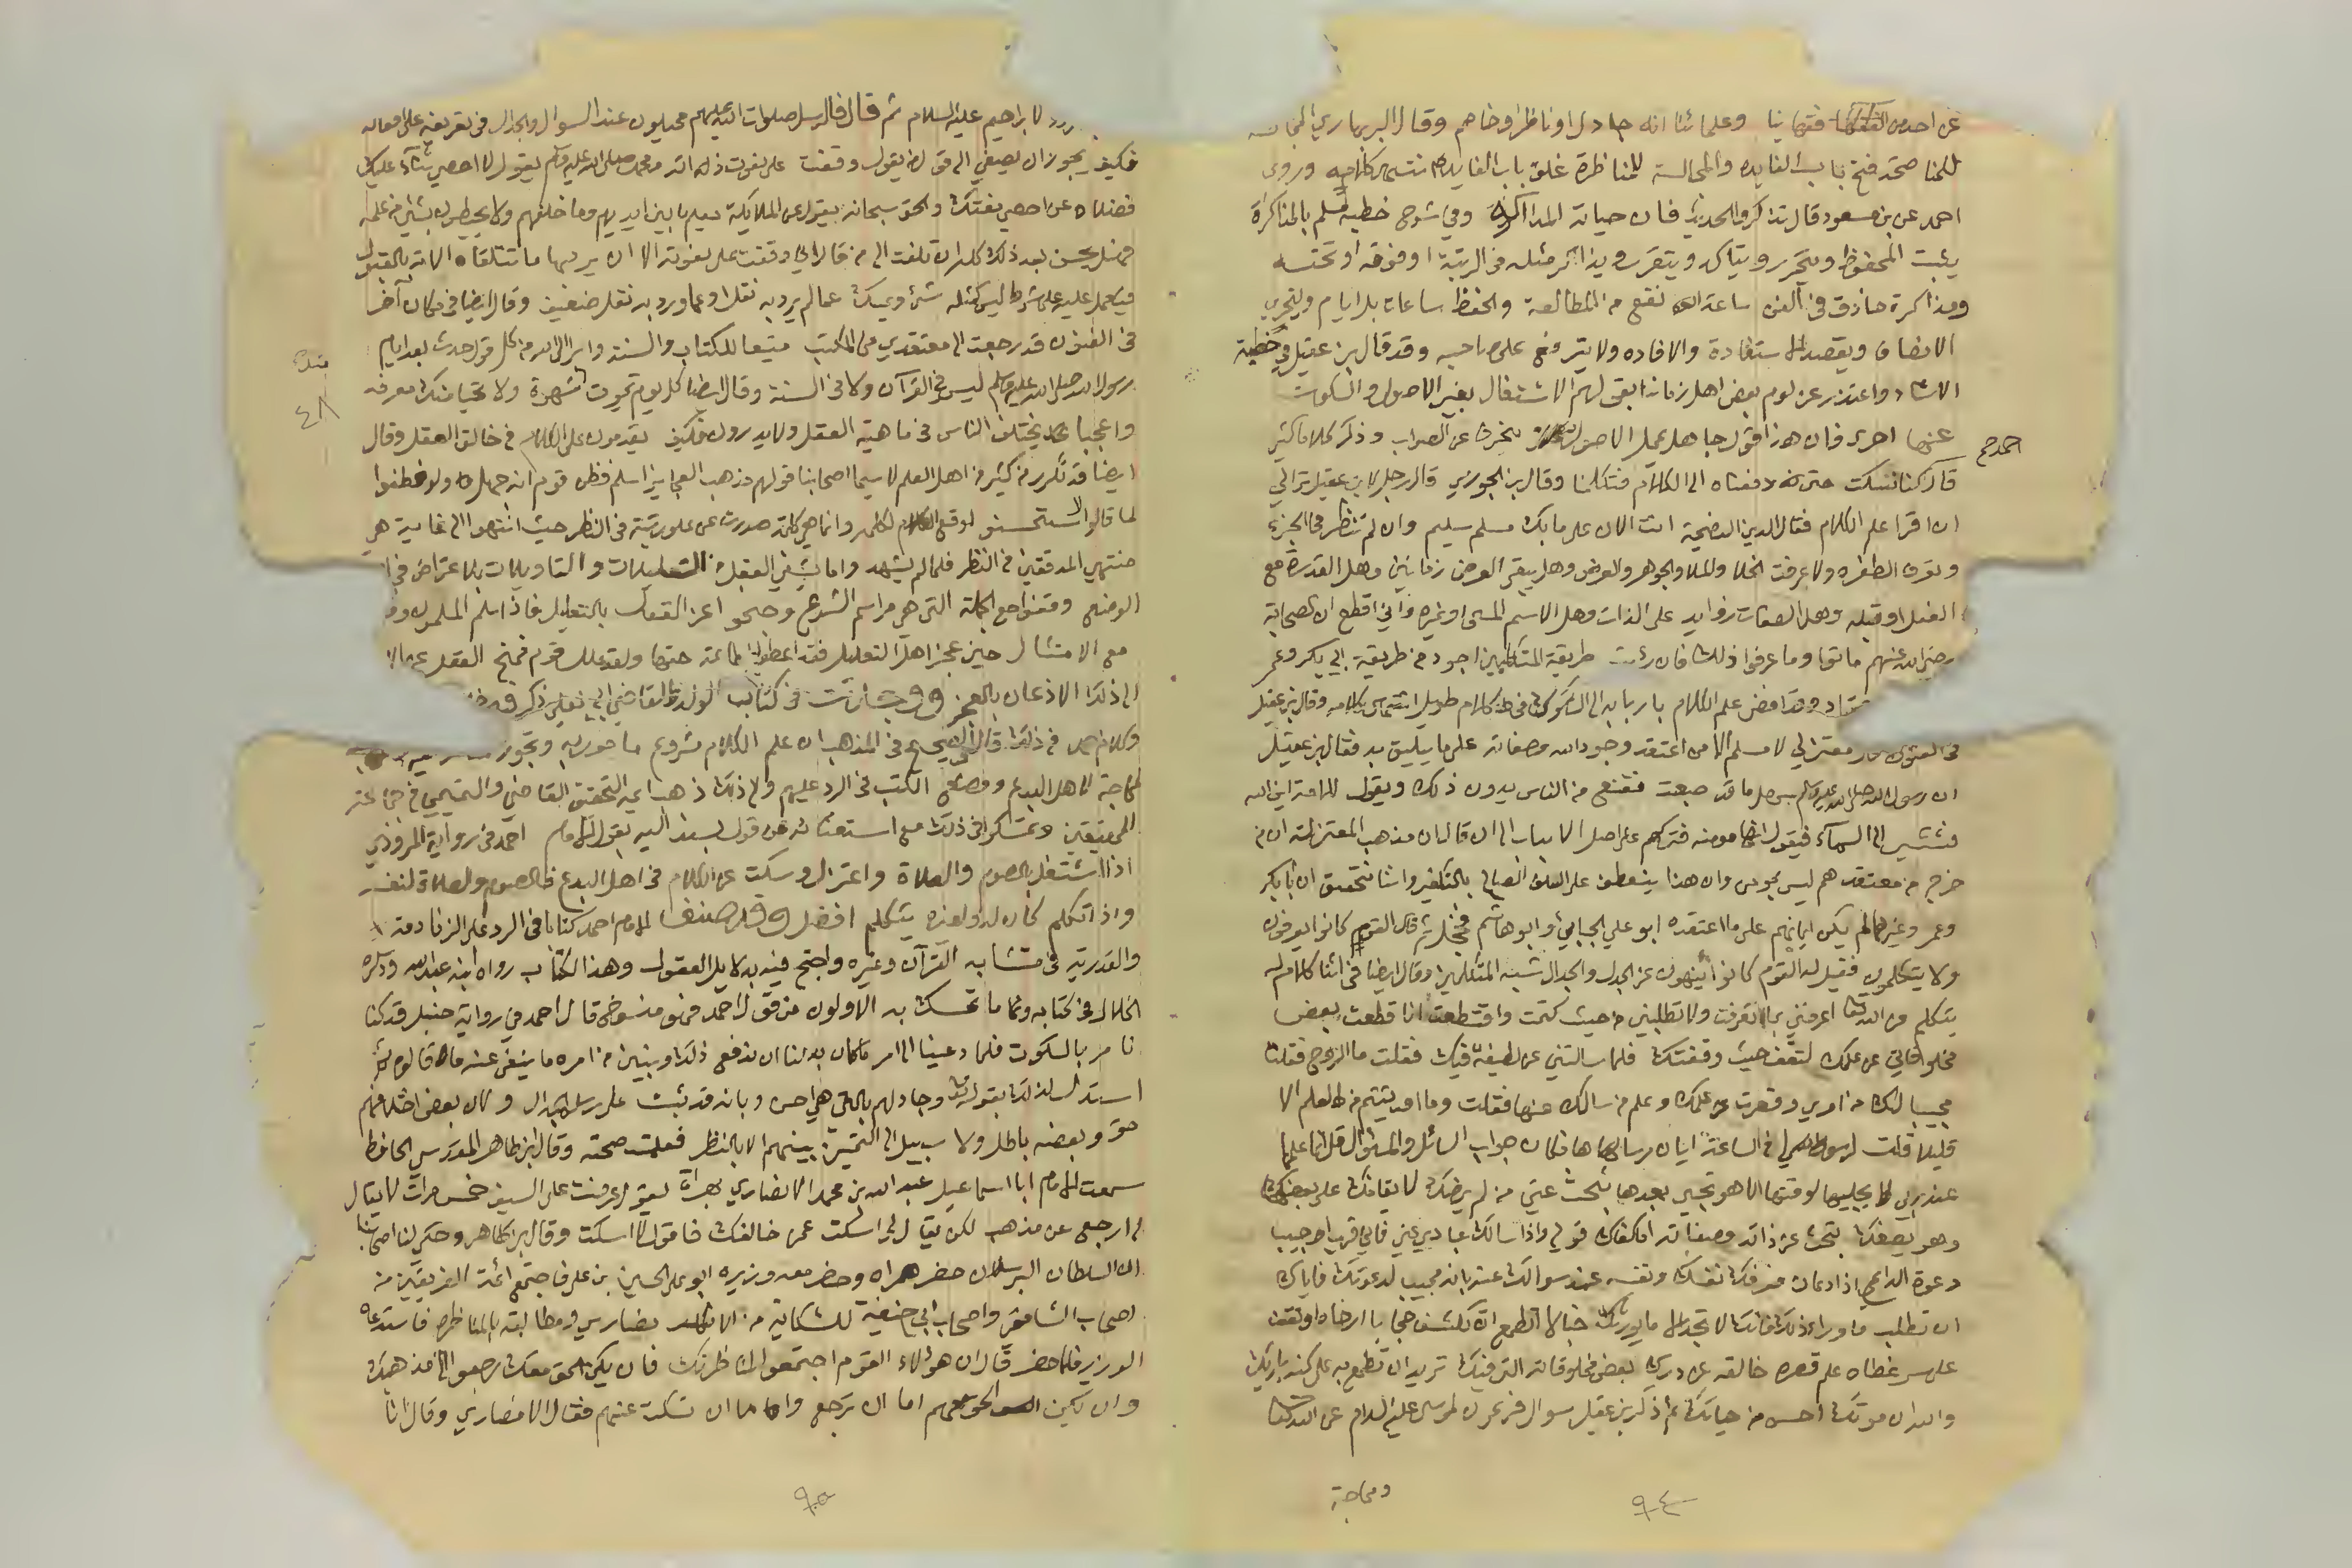 عن احد من فقهائنا وعلمائنا انه جادل او ناظر او خاصم وقال البربهاري المجالسة
للمناصحة فتح باب الفايدة والمجالسة للمناظرة غلق باب الفايدة انتهى كلامه وروى
احمد عن بن مسعود قال تذاكروا الحديث فان حياته المذاكرة وفي شرح خطبة مسلم بالمذاكرة
يثبت المحفوظ ويتحرر ويتاكد ويتقرر ويذاكر مثله في الرتبة او فوقه او تحته
ومذاكرة حاذق في الفن ساعة انفع من المطالعة والحفظ ساعات بل ايام وليتحرى
الانصاف ويقصد الاستفادة والافاده ولا يترفع على صاحبه وقد قال بن عقيل في خطبة
الارشاد واعتذر عن لوم بعض اهل زمانه بقولهم الاشتغال بغير الاصول والسكوت
عنها احرى فان هذا قول جاهل بمحل الاصول منحرف عن الصواب وذكر كلاما كثيرا
احمد
قال كنا نسكت حتى دفعنا الى الكلام فتكلمنا وقال بن الجوزي قال رجل لابن عقيل ترى لي
ان اقرا علم الكلام فقال الدين النصيحة انت الان على ما بك مسلم سليم وان لم تنظر في الجزء
وتعرف الطفره ولا عرفت الخلا والملا والجوهر والعرض وهل يبقى العرض زمانين وهل القدرة مع
الفعل او قبله وهل الصفات زوايد على الذات وهل الاسم المسمى او غيره واني اقطع ان الصحابة
رضي الله عنهم ماتوا وما عرفوا ذلك فان رايت طريقة المتكلمين اجود من طريقة ابي بكر وعمر
وقد افضى علم الكلام باربابه الى الشكوك في كلام طويل انتهى كلامه وقال بن عقيل
في الفنون قال معتزلي لا مسلم الا من اعتقد وجود الله وصفاته على ما يليق به فقال بن عقيل
ان رسول الله صلى الله عليه وسلم سهل ما قد صعبت فقنع من الناس بدون ذلك ويقول للامة اين الله
فتشير الى السماء فيقول انها مومنه فتركهم على اصل الاثبات الى ان قال ان مذهب المعتزلة ان من
خرج من معتقدهم ليس بمومن وان هذا ينعطف على السلف الصالح بالتكفير وانا نتحقق ان ابا بكر
وعمر وغيرهما لم يكن ايمانهم على ما اعتقده ابو علي الجبائي وابو هاشم فخجل ثم قال القوم كانوا يعرفون
ولا يتكلمون فقيل له القوم كانوا ينهون عن الجدل والجدال شبه المتكلمين وقال ايضا في اثنا كلام له
يتكلم عن الله تعالى اعرفني بما تعرفت ولا تطلبني من حيث كتمت واقتطعت انا قطعت بعض
مخلوقاتي عن علمك لتقف حيث وقفتك فلما سالتني عن لطيفة فيك فقلت ما الروح فقلت
مجيبا لك من امري وقصرت علمك وعلم من سالك عنها فقلت وما اوتيتم من العلم الا
قليلا قلت لرسولي في الساعة ايان مرساها فكان جواب السائل والمسئول قل انما علمها
عند ربي لا يجليها لوقتها الا هو تجي بعدها تبحث عني من لم يرضك لايقافك على بعضك
وهو يصفك بتبحث عن ذاته وصفاته اما كفاك قولي واذا سالك عبادي عني فاني قريب اجيب
دعوة الداعي اذا دعان فعرفك نفسك ونفسه عند سوالك عنه بانه مجيب لدعوتك فاياك
ان تطلب ما وراء ذلك فانك لا تجد الا ما يورثك خبالا اتطمع ان تكشف حجابا ارخاه او تقف
على سر غطاه علم قصره خالقه عن درك بعض مخلوقاته التي فيك تريد ان تطلع به على كنه باريك
والله ان موتك احسن من حياتك ثم ذكر بن عقيل سوال فرعون لموسى عليه السلام عن الله تعالى
ومحاجة
٩٤
لابراهيم عليه السلام ثم قال فالرسل صلوات الله عليهم محيلون عند السوال والجدال في تعريفه على افعاله
فكيف يجوز ان يصغي الى قول من يقول وقفت على نعوت ذاته ومحمد صلى الله عليه وسلم يقول لا احصي ثناء عليك
فضلا عن احصي نعتك والحق سبحانه يقول عن الملايكة يعلم ما بين ايديهم وما خلفهم ولا يحيطون بشي من علمه
فهل يحسن بعد ذلك كله ان تلتفت الى من قال اني وقفت على نعوته الا ان يرد بها ما تتلقاه الامة بالقبول
فيحمل عليه على شرط ليس كمثله شئ ويمسك عما لم يرد به نقل او عما ورد به نقل ضعيف وقال ايضا في مكان آخر
في الفنون قد رجعت الى معتقدي من المكتب متبعا للكتاب والسنة وابرا الى الله من كل قول حدث بعد ايام
رسول الله صلى الله عليه وسلم ليس في القرآن ولا في السنة وقال ايضا كل يوم تموت شهوة ولا تحيا منك معرفة
٤٨
واعجبا تختلف الناس في ماهية العقل ولا يدرون فكيف يقدمون على الكلام في خالق العقل وقال
ايضا قد تكرر من كثير من اهل العلم لا سيما اصحابنا قولهم مذهب العجايز اسلم فظن قوم انه جهل ولو فطنوا
لما قالوا لاستحسنوا لوقع الكلام وانما هي كلمة صدرت عن علو رتبة في النظر حيث انتهوا الى غاية هي
منتهى المدققين في النظر فلما لم يشهد واما يشفي العقل من التعليلات والتاويلات بالاعتراض في
الوضع وقفوا مع الجملة التي هي مراسم الشرع وجنحوا عن القول بالتعليل فاذا سلم المسلمون
مع الامتثال حين عجز اهل التعليل فقد اعطوا الطاعة حقها ولقد علل قوم فمنع العقل
الى ذلك الاذعان بالعجز في كتاب القاضي ابي يعلى ذكر فيه
وكلامه في ذلك قال الصحيح في المذهب ان علم الكلام مشروع مامور به وتجوز
محاجة اهل البدع ووضع الكتب في الرد عليهم والى ذلك ذهب ايمة التحقيق القاضي والتميمي في جماعة
المحققين وتمسكوا في ذلك مع استغنائه عن قول يسند اليه بقول الامام احمد في رواية المروذي
اذا اشتغل بالصوم والصلاة واعتزل وسكت عن الكلام في اهل البدع فالصوم والصلاة لنفسه
واذا تكلم كان له ولغيره يتكلم افضل وقد صنف الامام احمد كتابا في الرد على الزنادقة
والقدرية في متشابه القرآن وغيره واحتج فيه بدلايل العقول وهذا الكتاب رواه ابنه عبد الله وذكره
الخلال في كتابه وما تمسك به الاولون من قول احمد فهو منسوخ قال احمد في رواية حنبل قد كنا
نامر بالسكوت فلما دعينا الى امر ما كان بد لنا ان ندفع ذلك ونبين من امره ما ينفي عنه ما قالوه ثم
استدل لذلك بقوله تعالى وجادلهم بالتي هي احسن وبانه قد ثبت على رسل الجدال ولان بعض اختلافهم
حق وبعضه باطل ولا سبيل الى التمييز بينهما الا بالنظر فعلمت صحته وقال ابن طاهر المقدسي الحافظ
سمعت الامام ابا اسماعيل عبد الله بن محمد الانصاري بهراة يقول عرضت على السيف خمس مرات لا يقال
لي ارجع عن مذهبك لكن يقال لي اسكت عمن خالفك فاقول لا اسكت وقال بن طاهر وحكى لنا اصحابنا
ان السلطان الب ارسلان حضر هراه وحضر معه وزيره ابو علي الحسين بن علي فاجتمع ائمة الفريقين من
اصحاب الشافعي واصحاب ابي حنيفة للشكاية من الانصاري ومطالبته بالمناظرة فاستدعاه
الوزير فلما حضر قال ان هؤلاء القوم اجتمعوا لمناظرتك فان يكن الحق معك رجعوا الى مذهبك
وان يكن الحق معهم اما ان ترجع واما ان تسكت عنهم فقام الانصاري وقال انا
٩٥